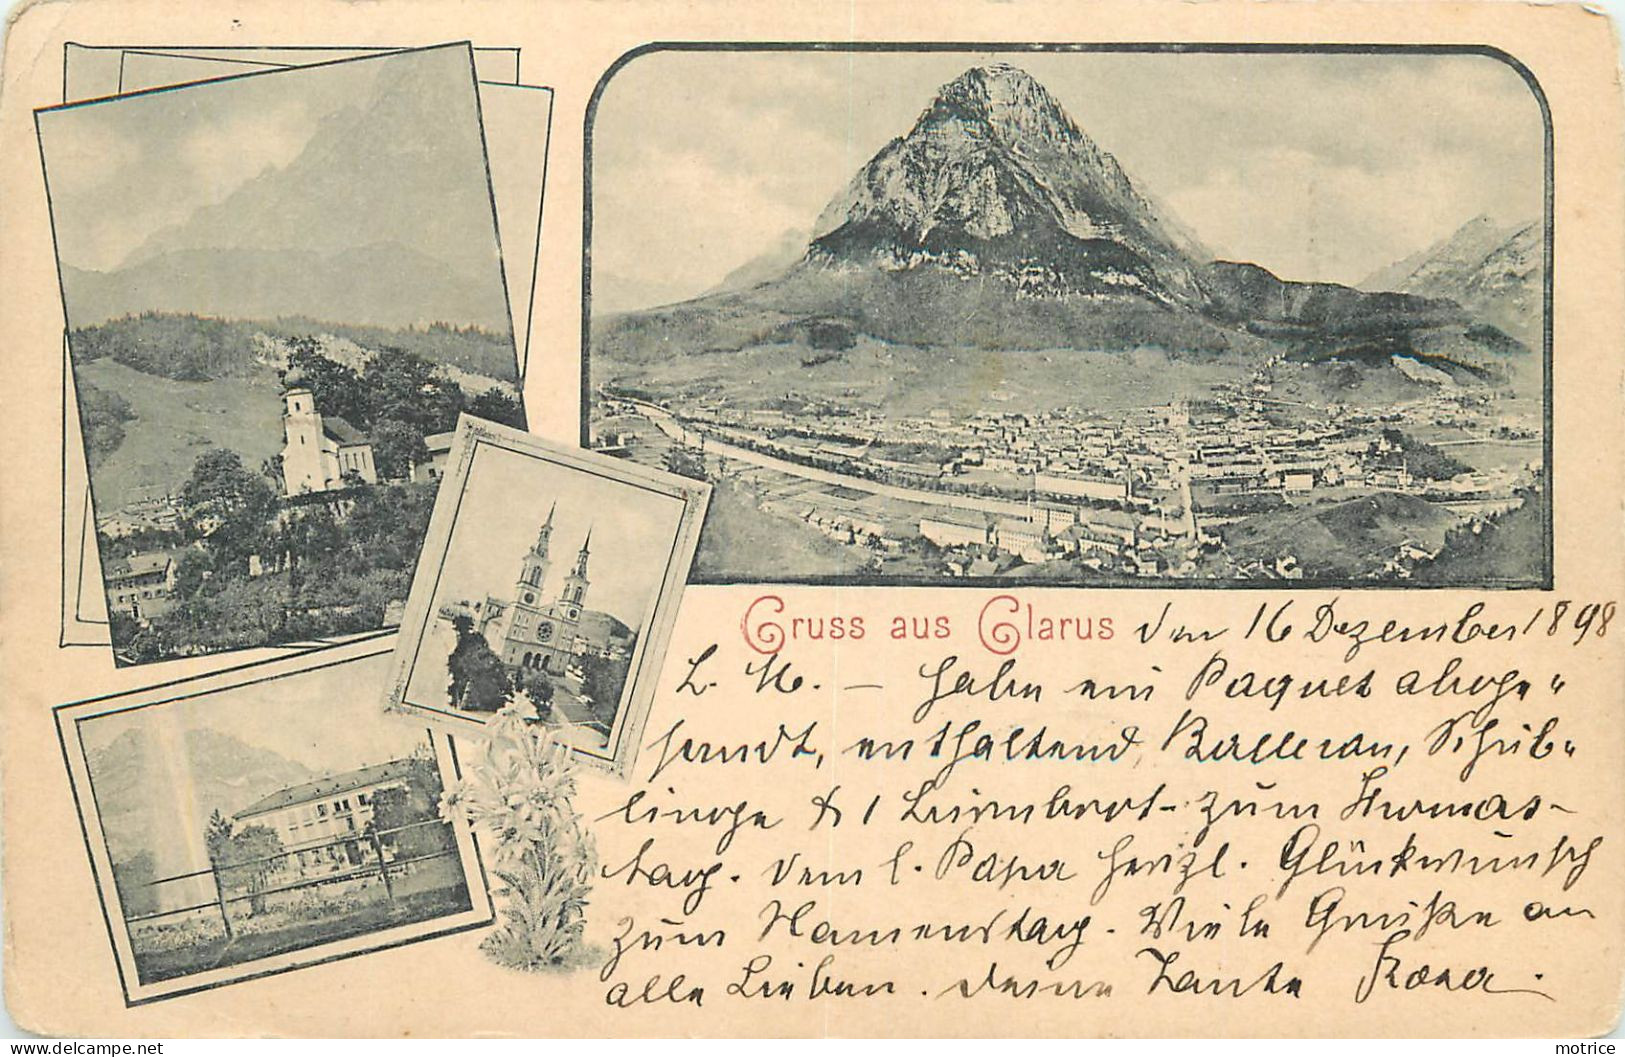 Gruss aus Glarus den 16 Dezember 1898
L. M. — habe ein Paquet abge„
sandt, enthaltend, Schüb„
linge & 1 Birnbrot - zum Thomas-
tag. Dem l. Papa herzl. Glückwunsch
zum Namenstag. Viele Grüße an
alle Lieben. Deine Tante Rosa.
delcampe.net
motrice